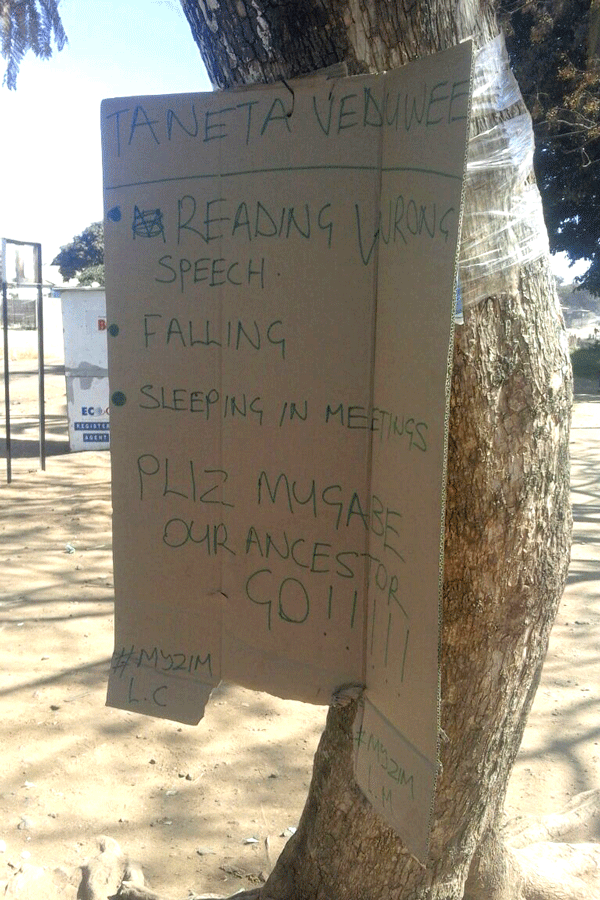 TANETA VEDUWEE
• READING WRONG
SPEECH.
• FALLING
• SLEEPING IN MEETINGS
PLIZ MUGABE
OUR ANCESTOR
GO!!!!!
#MYZIM
L.C
#MYZIM
L.M
B
EC
REGISTER
AGENT